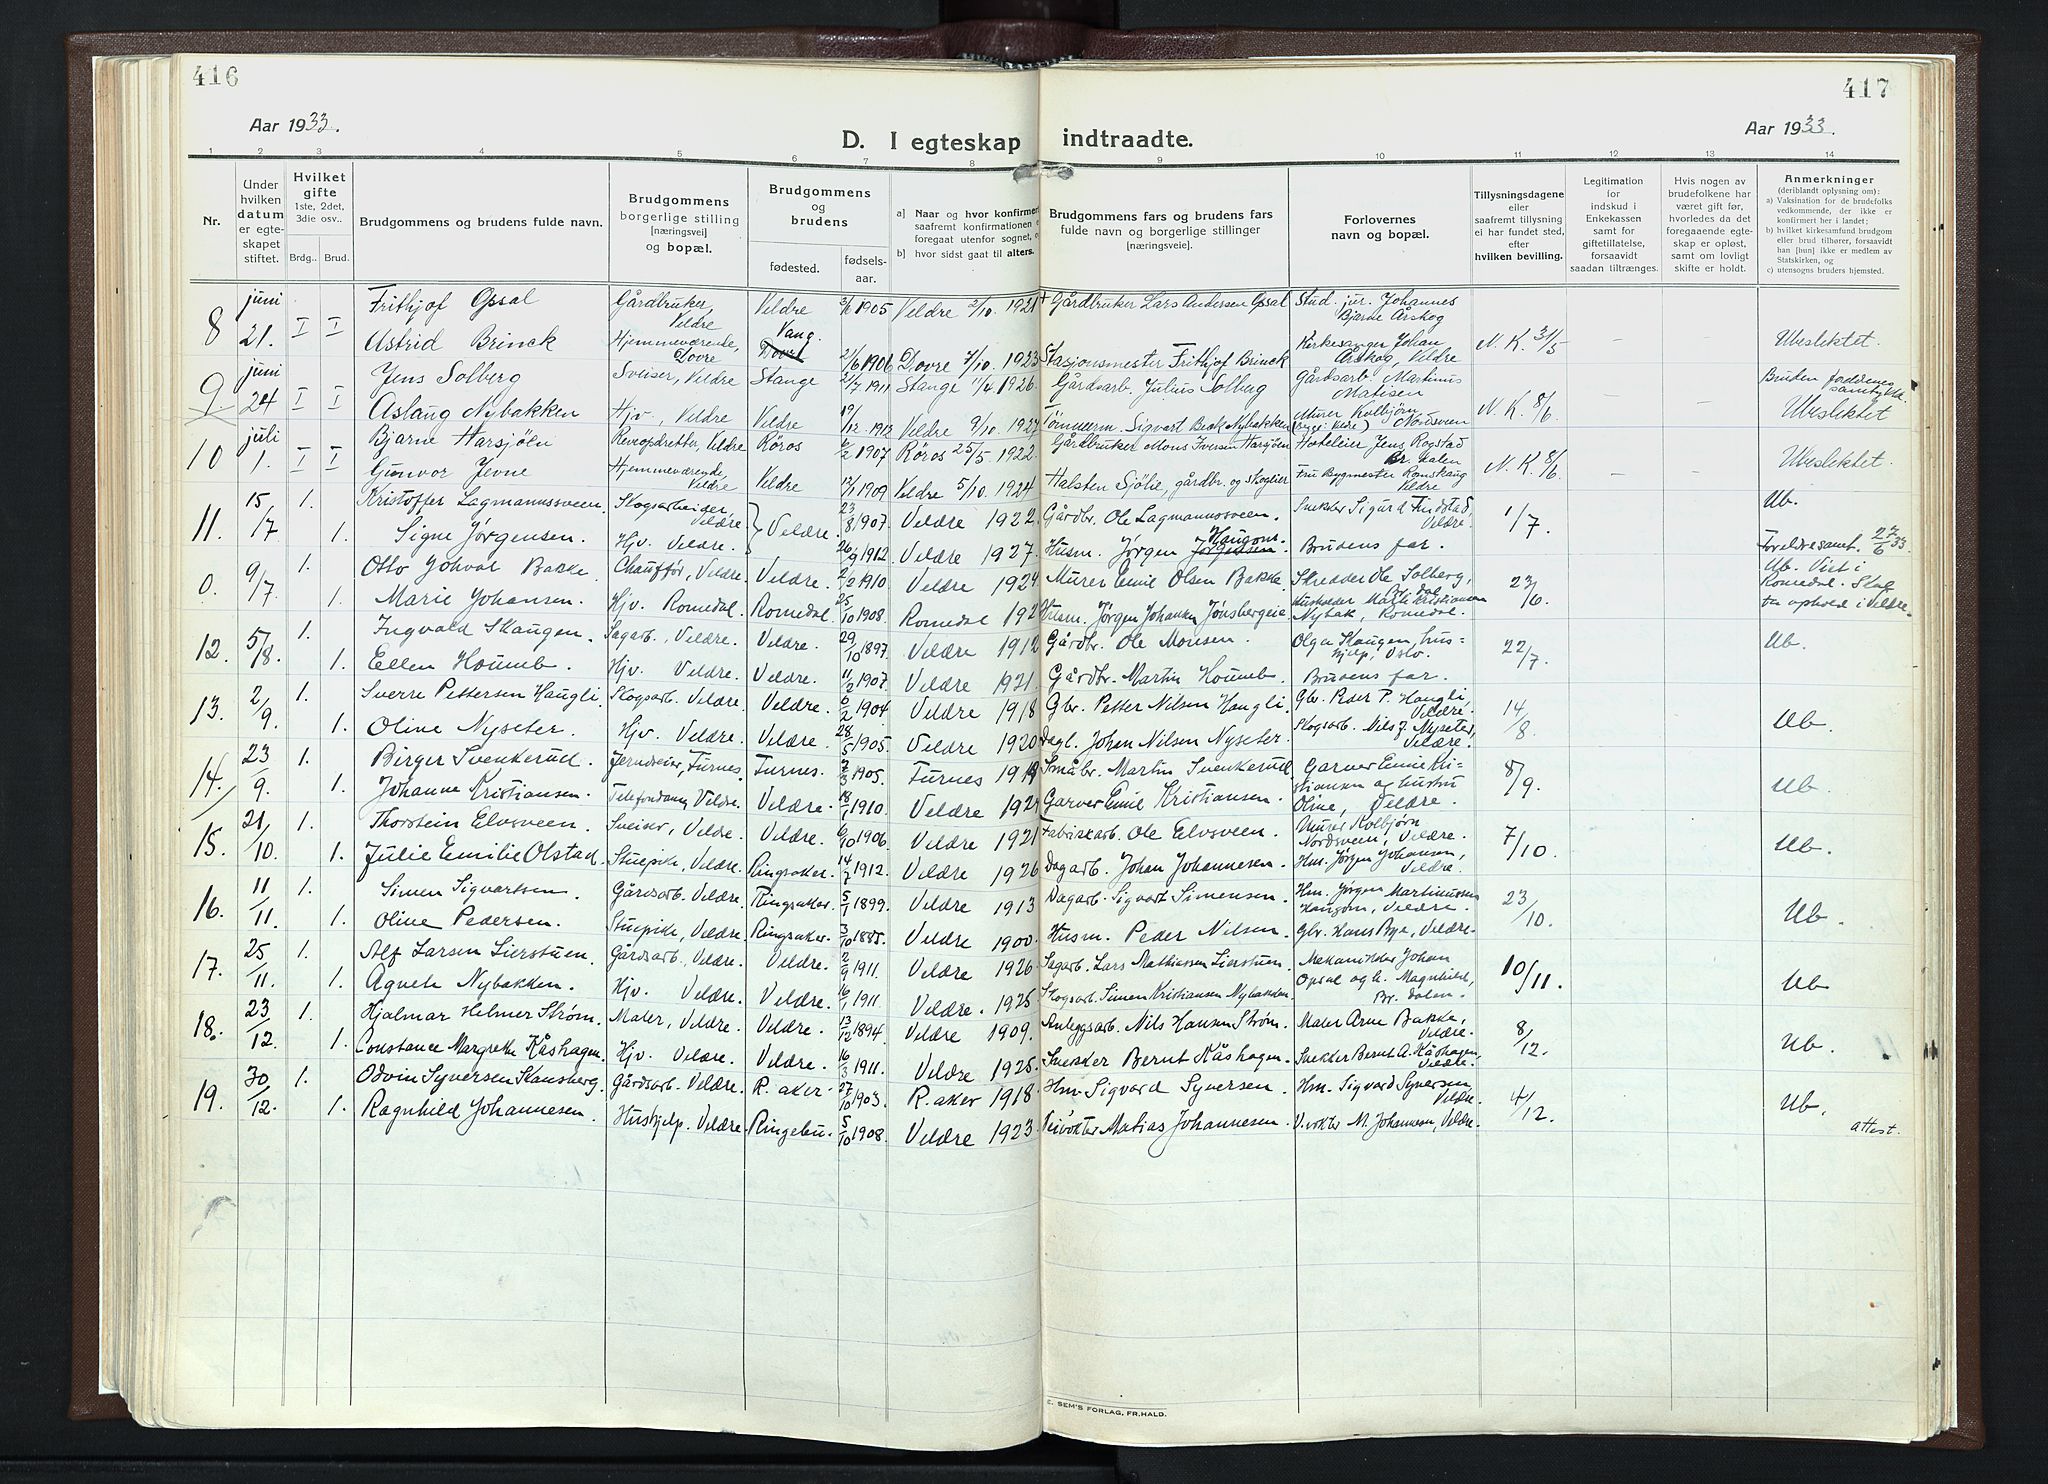 416
417
Aar 1933.
D. I egteskap indtraadte.
Aar 1933.
1 2 3 4 5 6 7 8 9 10 11 12 13 14
Nr.
Under hvilken datum er egteskapet stiftet.
Hvilket gifte 1ste, 2det, 3die osv..
Brdg.. Brud.
Brudgommens og brudens fulde navn.
Brudgommens borgerlige stilling [næringsvei] og bopæl.
Brudgommens og brudens
fødested.
fødselsaar.
a] Naar og hvor konfirmert saafremt konfirmationen foregaat utenfor sognet,
b] hvor sidst gaat til alters.
Brudgommens fars og brudens fars fulde navn og borgerlige stillinger [næringsveie].
Forlovernes navn og bopæl.
Tillysningsdagene eller saafremt tillysning ei har fundet sted, efter hvilken bevilling.
Legitimation for indskud i Enkekassen samt for giftetillatelse, forsaavidt saadan tiltrænges.
Hvis nogen av brudefolkene har været gift før, hvorledes da det foregaaende egteskap er opløst, samt om lovligt skifte er holdt.
Anmerkninger (deriblandt oplysning om):
a) Vaksination for de brudefolks vedkommende, der ikke er konfirmert her i landet;
b) hvilket kirkesamfund brudgom eller brud tilhører, forsaavidt han [hun] ikke er medlem av Statskirken, og
c) utensogns bruders hjemsted.
8 juni 21. I I Frithjof Opsal Gårdbruker, Veldre Veldre 1905 Veldre 2/10. 1921 Gårdbruker Lars Andersen Opsal Stud. jur. Johannes Bjarne Årskog
Astrid Brinck Hjemmeværende, Dovre Vang Dovre 21/6 1906 Dovre 7/10. 1923 Stasjonsmester Frithjof Brinck Kirkesanger Johan Årskog, Veldre N. K. 31/5 Ubeslektet.
9 juni 24 I I Jens Solberg Sveiser, Veldre Stange 2/7 1911 Stange 11/4 1926. Gårdsarb. Julius Solberg Gårdsarb. Martinus Matisen Bruden foreldrenes samtykke.
Aslaug Nybakken Hjv, Veldre Veldre 19/12 1912 Veldre 9/10. 1927 Tømmerm. Sigvart Nybakken Murer Kolbjørn Nordsven N. K. 8/6. Ubeslektet
10 juli 1. I I Bjarne Harsjøln Reveopdretter, Veldre Røros 6/2 1907 Røros 25/5. 1922. Gårdbruker Mons Iversen Harsjøen Hoteleier Jens Rogstad
Gunvor Jevne Hjemmeværende, Veldre Veldre 12/1 1909 Veldre 5/10. 1924 Halsten Sjølie, gårdbr. og skogeier Fru Bygmester Romskaug Veldre N. K. 8/6. Ubeslektet.
11. 15/17 1. Kristoffer Lagmannssveen. Skogsarbeider, Veldre. Veldre. 23/8 1907. Veldre 1922. Gårdbr. Ole Lagmannssveen. Snekker Sigurd Findstad, Veldre. 1/7. Ub.
1. Signe Jørgensen. Hjv. Veldre. 26/9 1912. Veldre 1927. Husm. Jørgen Jørgensen Haugom. Brudens far. Foreldresamt. 27/6 33.
0. 9/7. 1. Otto Johval Bakke. Chauffør, Veldre. Veldre. 2/2 1910. Veldre 1924 Murer Emil Olsen Bakke. Skredder Ole Solberg, 23/6. Ub. Viet i Romedal.
1. Marie Johansen. Hjv. Romedal. Romedal. 25/10 1908. Romedal Husm. Jørgen Johansen Jønsbergeie Husholder Marti Kristiansen Nybak, Romedal. ophold i Veldre.
12. 5/8. 1. Ingvald Skaugen. Sagarb., Veldre. Veldre. 29/10 1897. Veldre 1912 Gårdbr. Ole Monsen. Olga Skaugen, hushjelp, Oslo. 22/7. Ub.
1. Ellen Houmb. Hjv. Veldre. Veldre. 11/2 1907. Veldre 1921. Gårdbr. Martin Houmb. Brudens far.
13. 2/9. 1. Sverre Pettersen Haugli. Skogsarb. Veldre. Veldre. 6/2 1904 Veldre 1918 Gbr. Petter Nilsen Haugli. Gbr. Peder P. Haugli, Veldre. 14/8. Ub.
1. Oline Nyseter. Hjv. Veldre. Veldre. 28/5 1905. Veldre 1920 Dagl. Johan Nilsen Nyseter. Skogsarb. Nils J. Nyseter, Veldre.
14. 23/9. 1. Birger Svenkerud. Jerndreier, Furnes. Furnes. 7/3 1905. Furnes 1919 Småbr. Martin Svenkerud. Garver Emil Kristiansen og hustru Oline, Veldre. 8/9. Ub.
1. Johanne Kristiansen. Telefondame, Veldre. Veldre. 18/1 1910. Veldre 1924 Garver Emil Kristiansen.
15. 21/10. 1. Thorstein Elvsveen. Sveiser, Veldre. Veldre. 6/10 1906. Veldre 1921 Fabrikkarb. Ole Elvsveen. Murer Kolbjørn Nordsveen, Veldre. 7/10. Ub.
1. Julie Emilie Olstad. Stuepike, Veldre. Ringsaker. 14/7 1912. Veldre 1926 Dagarb. Johan Johannesen. Hm. Jørgen Johansen, Veldre.
16. 11/11. 1. Simen Sigvartsen. Gårdsarb. Veldre. Ringsaker. 5/1 1899. Veldre 1913 Dagarb. Sigvart Simensen. Hm. Jørgen Martinussen Haugom, Veldre. 23/10. Ub.
1. Oline Pedersen. Stuepike, Veldre. Ringsaker. 3/10 1885. Veldre 1900. Husm. Peder Nilsen. Gbr. Hans Bye, Veldre.
17. 25/11. 1. Alf Larsen Lierstuen. Gårdsarb., Veldre. Veldre. 2/9 1911. Veldre 1926 Sagarb. Lars Mathiassen Lierstuen. Mekaniker Johan Opsal og h. Magnhild, Br. dalen. 10/11. Ub
1. Agnete Nybakken. Hjv. Veldre. Veldre. 16/1 1911. Veldre. 1925 Skogsarb. Simen Kristiansen Nybakken.
18. 23/12. 1. Hjalmar Helmer Strøm. Maler, Veldre. Veldre. 13/12 1894. Veldre 1909. Anleggsarb. Nils Hansen Strøm. Maler Arne Bakke, Veldre. 8/12. Ub.
1. Constance Margrethe Kåshagen. Hjv. Veldre. Veldre. 16/3 1911. Veldre 1925. Snekker Bernt Kåshagen. Snekker Bernt A. Kåshagen, Veldre.
19. 30/12. 1. Odvin Syversen Skansberg. Gårdsarb. Veldre. R. aker. 27/10 1903. R. aker 1918 Hm. Sigvard Syversen. Hm. Sigvard Syversen, Veldre. 4/12. Ub.
1. Ragnhild Johannesen. Hushjelp. Veldre. Ringebu. 5/10 1908. Veldre 1923. Veivokter Matias Johannesen. V.vokter M. Johannesen, Veldre. attest.
E. SEM'S FORLAG, FR.HALD.